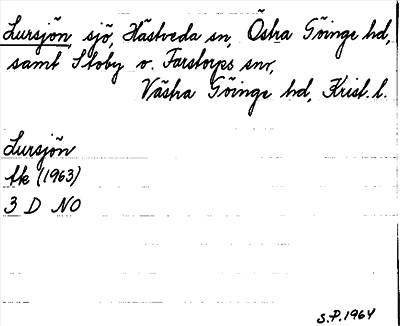 Lursjön, sjö, Hästveda sn, Östra Göinge hd,
samt Stoby o. Farstorps snr,
Västra Göinge hd, Krist. l.
Lursjön
tk (1963)
3 D NO
S.P. 1964